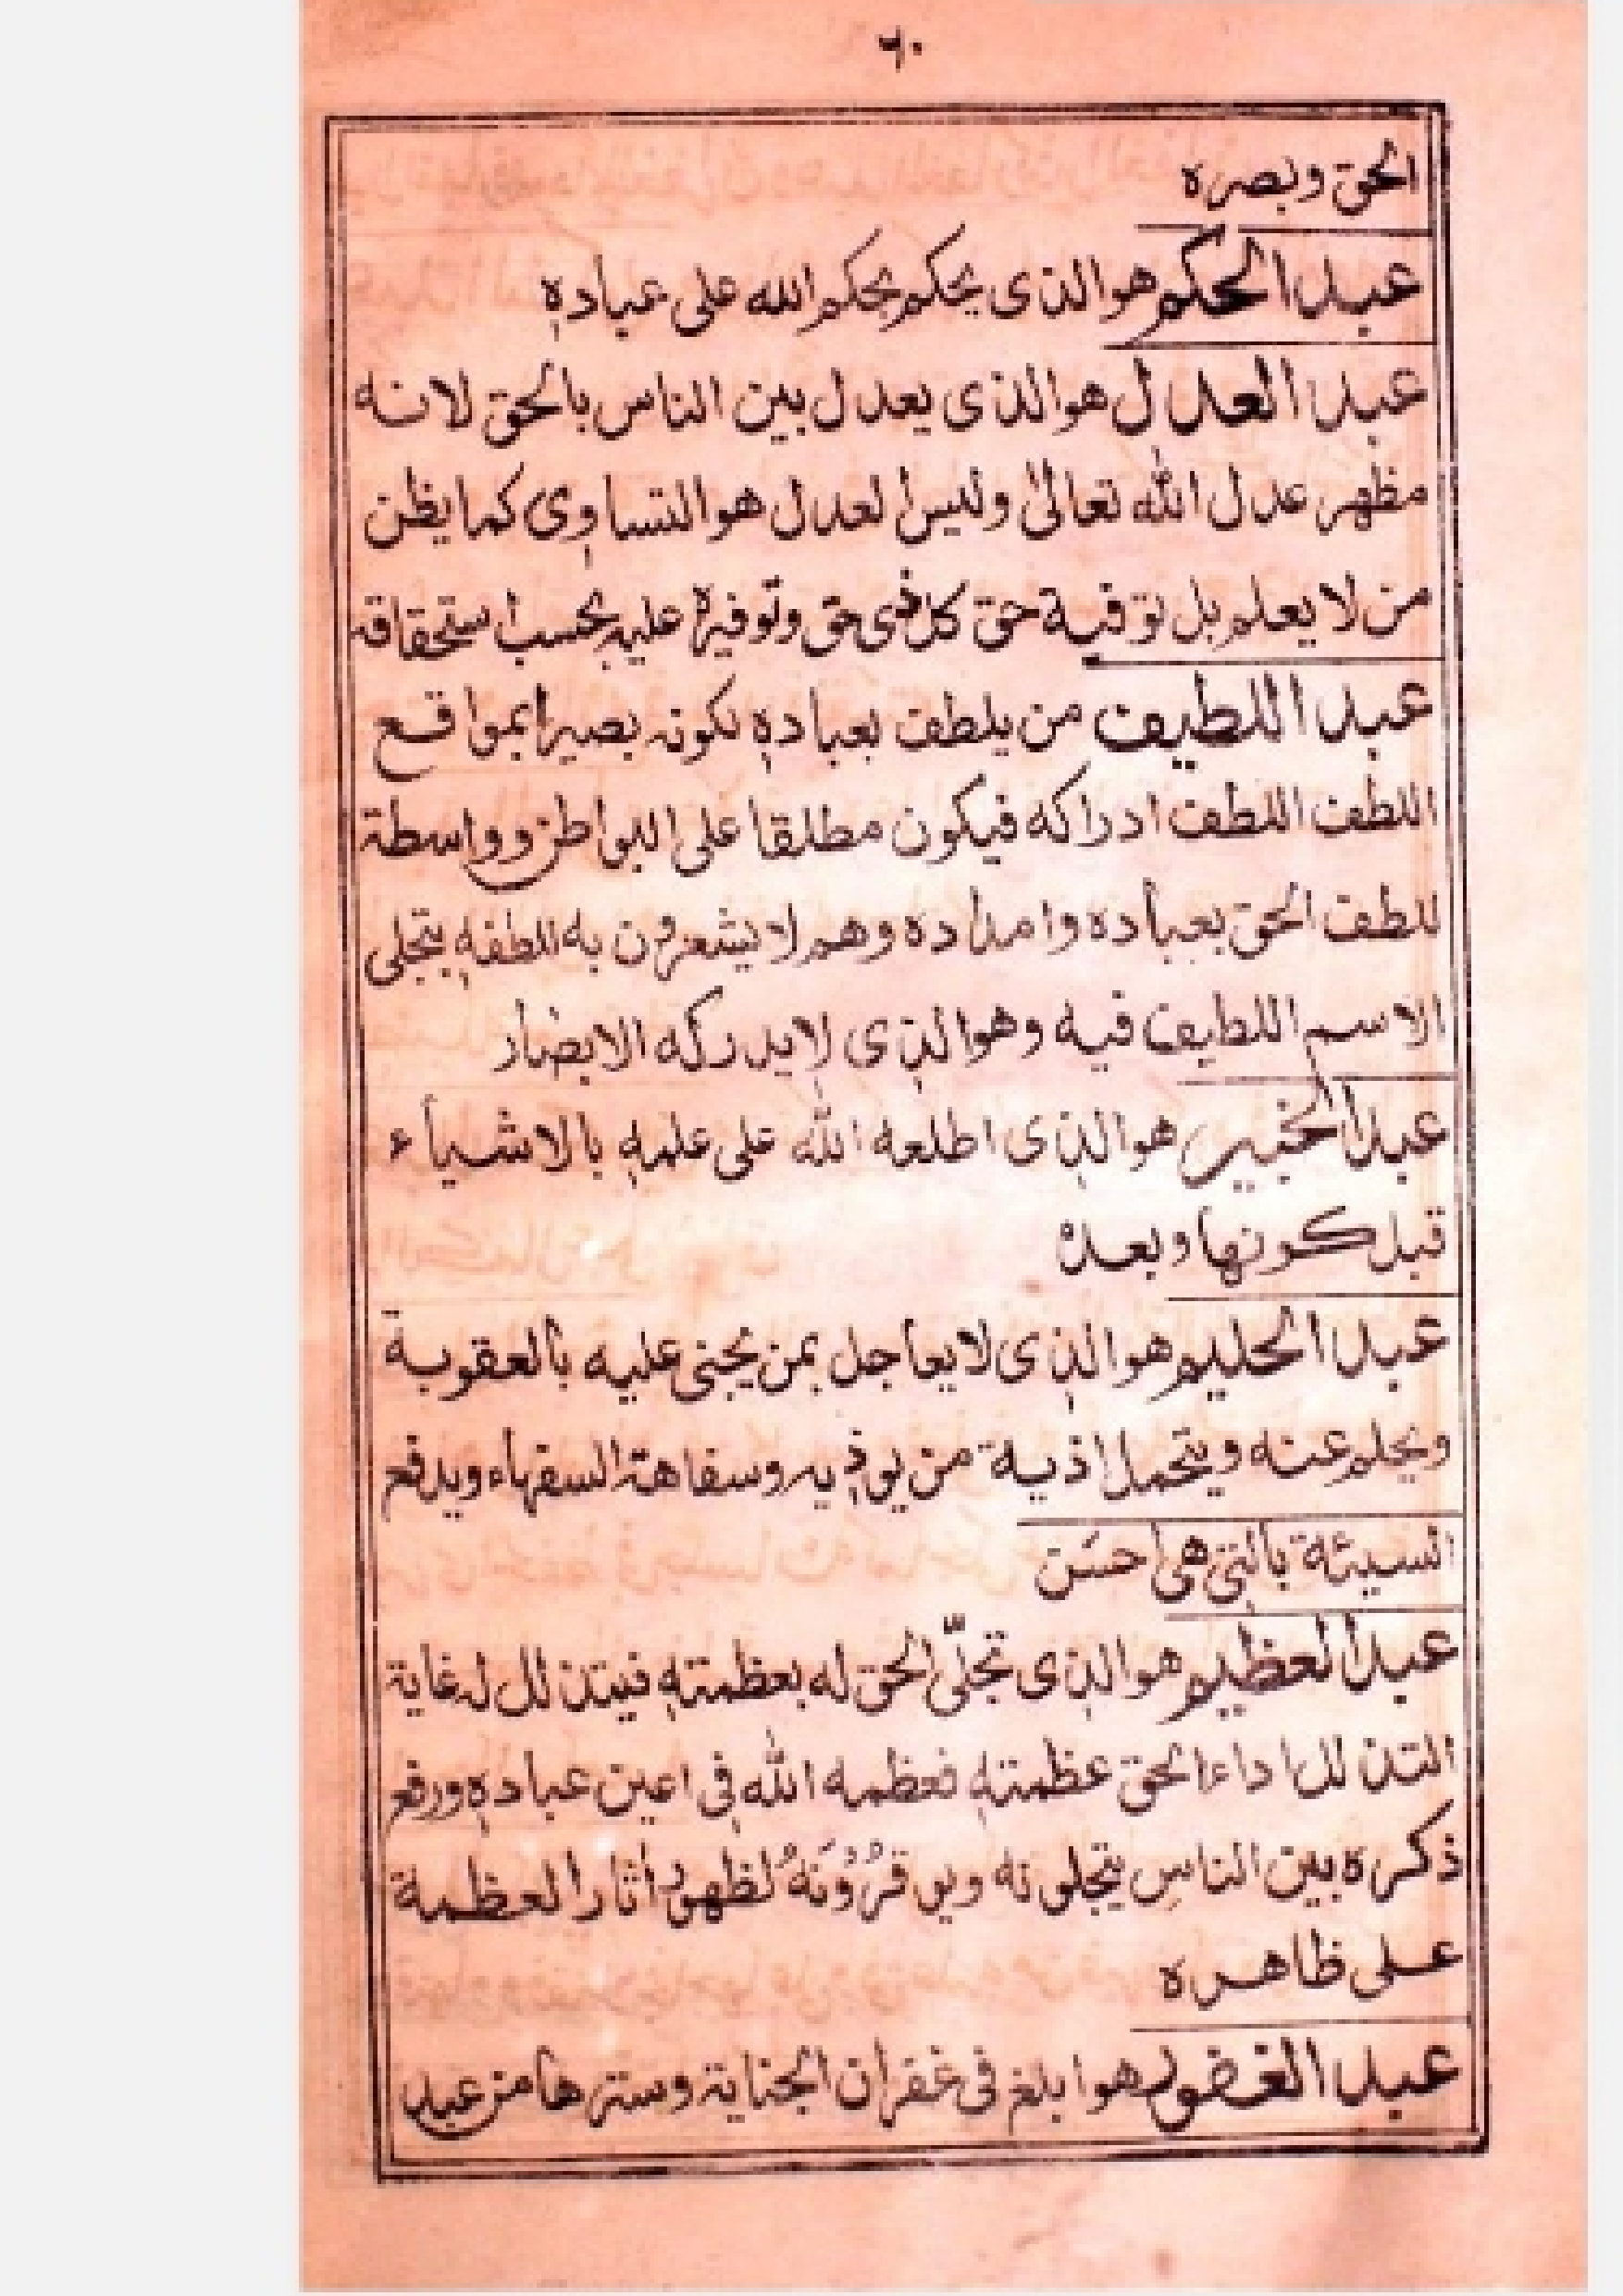 ٦٠
الحق وبصره
عبد الحكم هو الذى يحكم بحكم الله على عباده
عبد العدل هو الذى يعدل بين الناس بالحق لانه
مظهر عدل الله تعالىٰ وليس العدل هو التساوى كما يظن
من لا يعلم بل توفية حق كل ذى حق وتوفيره عليه بحسب استحقاقه
عبد اللطيف من يلطف بعباده لكونه بصيرا بمواقع
اللطف اللطف ادراكه فيكون مطلقا على البواطن وواسطة
للطف الحق بعباده وامداده وهم لا يشعرون به للطفه بتجلى
الاسم اللطيف فيه وهو الذى لا يدركه الابصار
عبد الخبير هو الذى اطلعه الله على علمه بالاشياء
قبل كونها وبعده
عبد الحليم هو الذى لا يعاجل بمن يجنى عليه بالعقوبة
ويحلم عنه ويتحمل اذية من يوذيه وسفاهة السفهاء ويدفع
السيئة بالتى هى احسَن
عبد العظيم هو الذى تجلّى الحق له بعظمته فيتذلل له غاية
التذلل اداء الحق عظمته فعظمه الله فى اعين عباده ورفع
ذكره بين الناس يتجلونه ويوقرُوْنَهُ لظهور اٰثار العظمة
على ظاهره
عبد الغفور هو ابلغ فى غفران الجناية وسترها من عبد